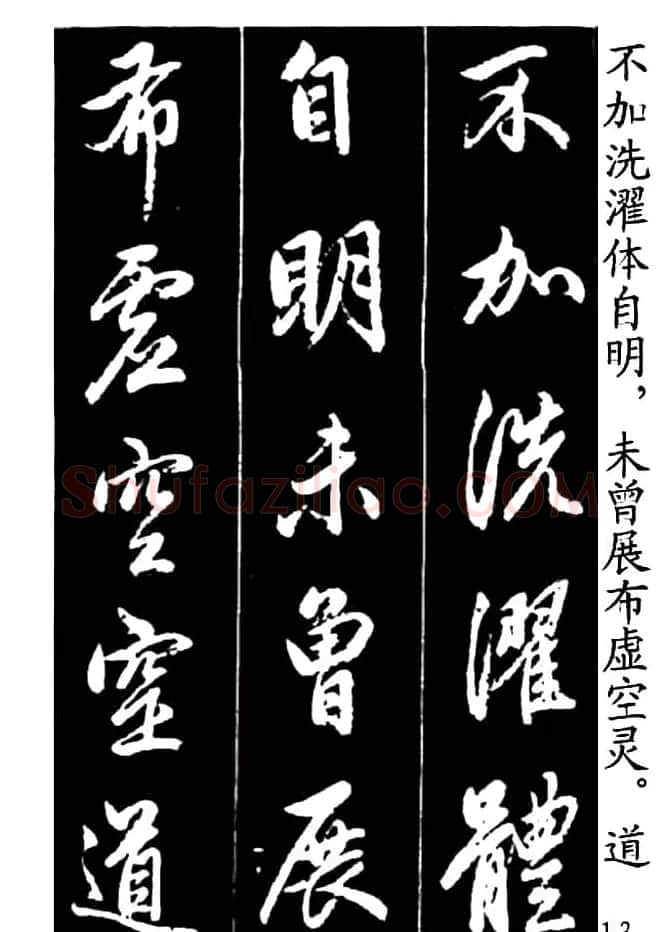 不加洗濯体自明，未曾展布虚空灵。道
不加洗濯體
自明未曾展
希虛空道
12
Shufaziliao.COM